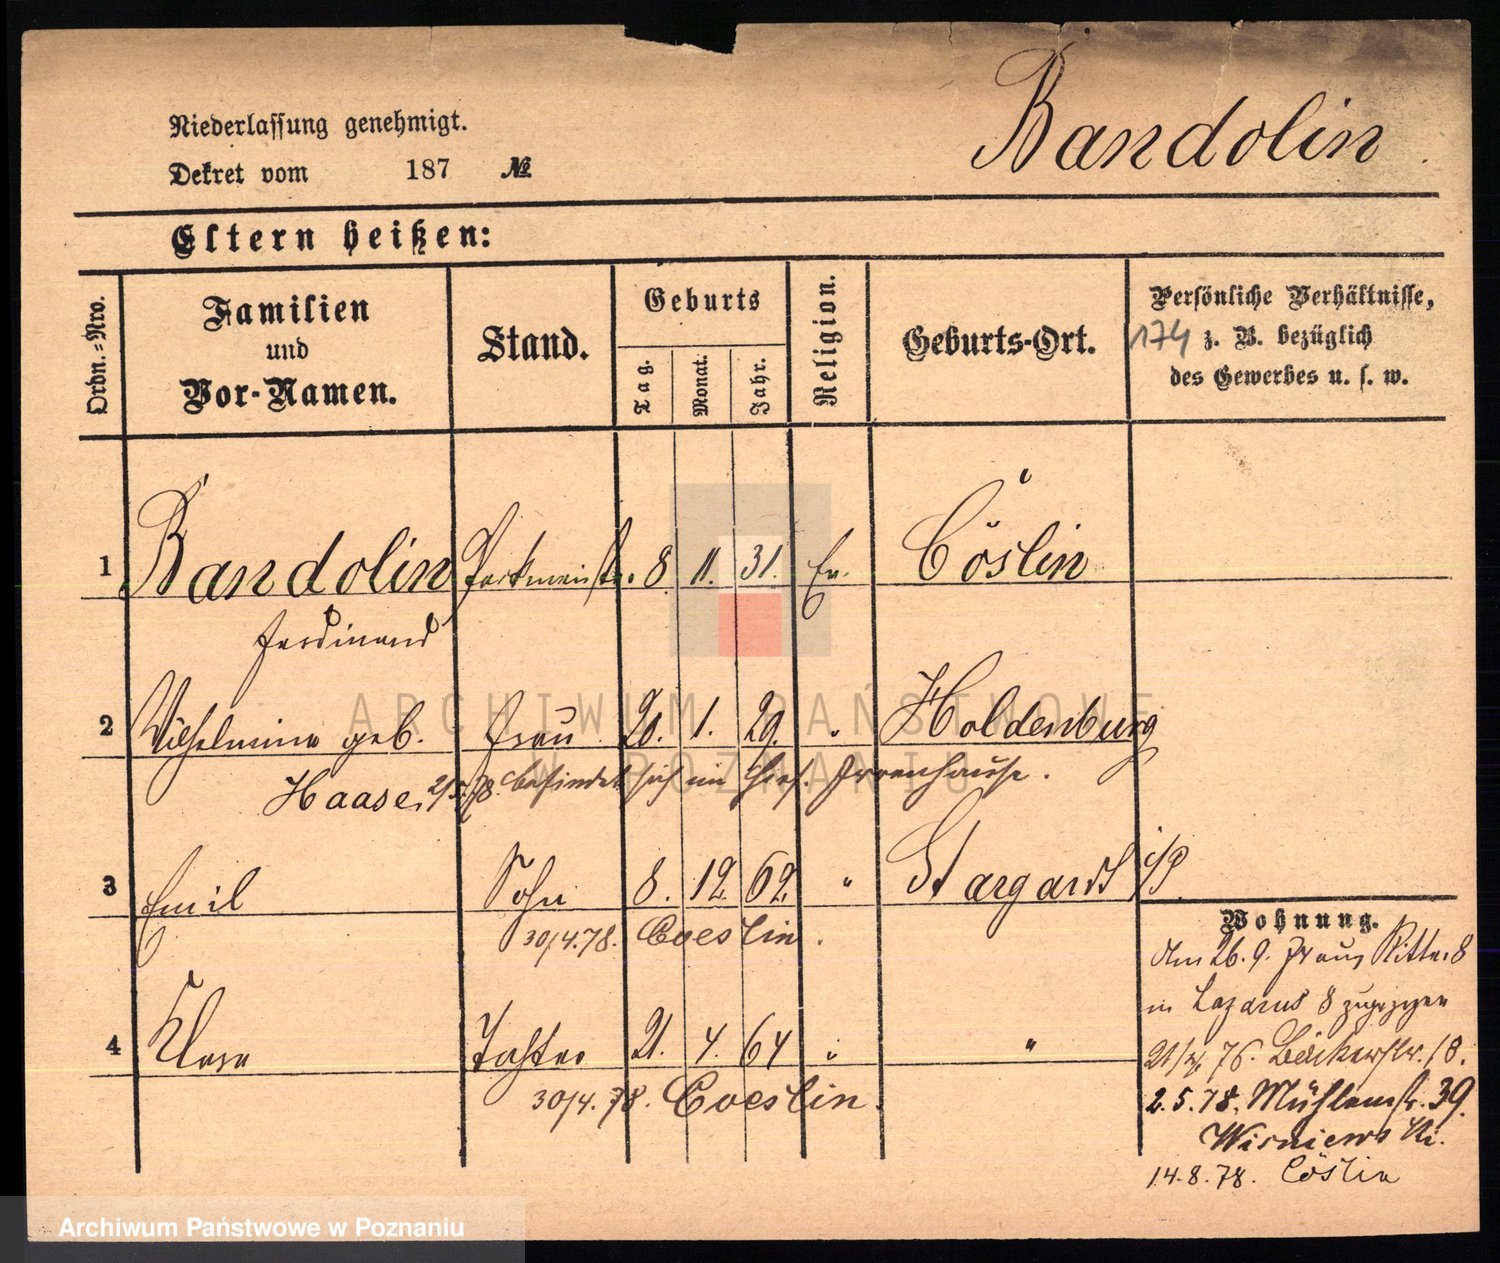 Bandolin
Niederlassung genehmigt.
Dekret vom 187 №
Eltern heißen:
Ordn.=Nro.
Familien
und
Vor-Namen.
Stand.
Geburts
Tag.
Monat.
Jahr.
Religion.
Geburts-Ort.
Persönliche Verhältnisse,
174 z. B. bezüglich
des Gewerbes u. s. w.
1 Bandolin 8. 11. 31. Ev. Cöslin
Ferdinand
2 Wilhelmine geb. Frau 20. 1. 29. " Holdenburg
Haase. 2/5.78. befindet sich im hies. Irrenhause.
3 Emil Sohn 8. 12. 62. " Stargardt i/P
30/4.78. Coeslin.
4 Klara Tochter 21. 4. 64 " "
30/4.78. Coeslin.
Wohnung.
Am 26. 9. aus Ritterst. 8
in Lazarus 8 zugezogen
76. Bäckerstr. 18.
2.5.78. Mühlenstr. 39.
Wisniewski.
14.8.78. Cöslin
ARCHIWUM PAŃSTWOWE
W POZNANIU
Archiwum Państwowe w Poznaniu